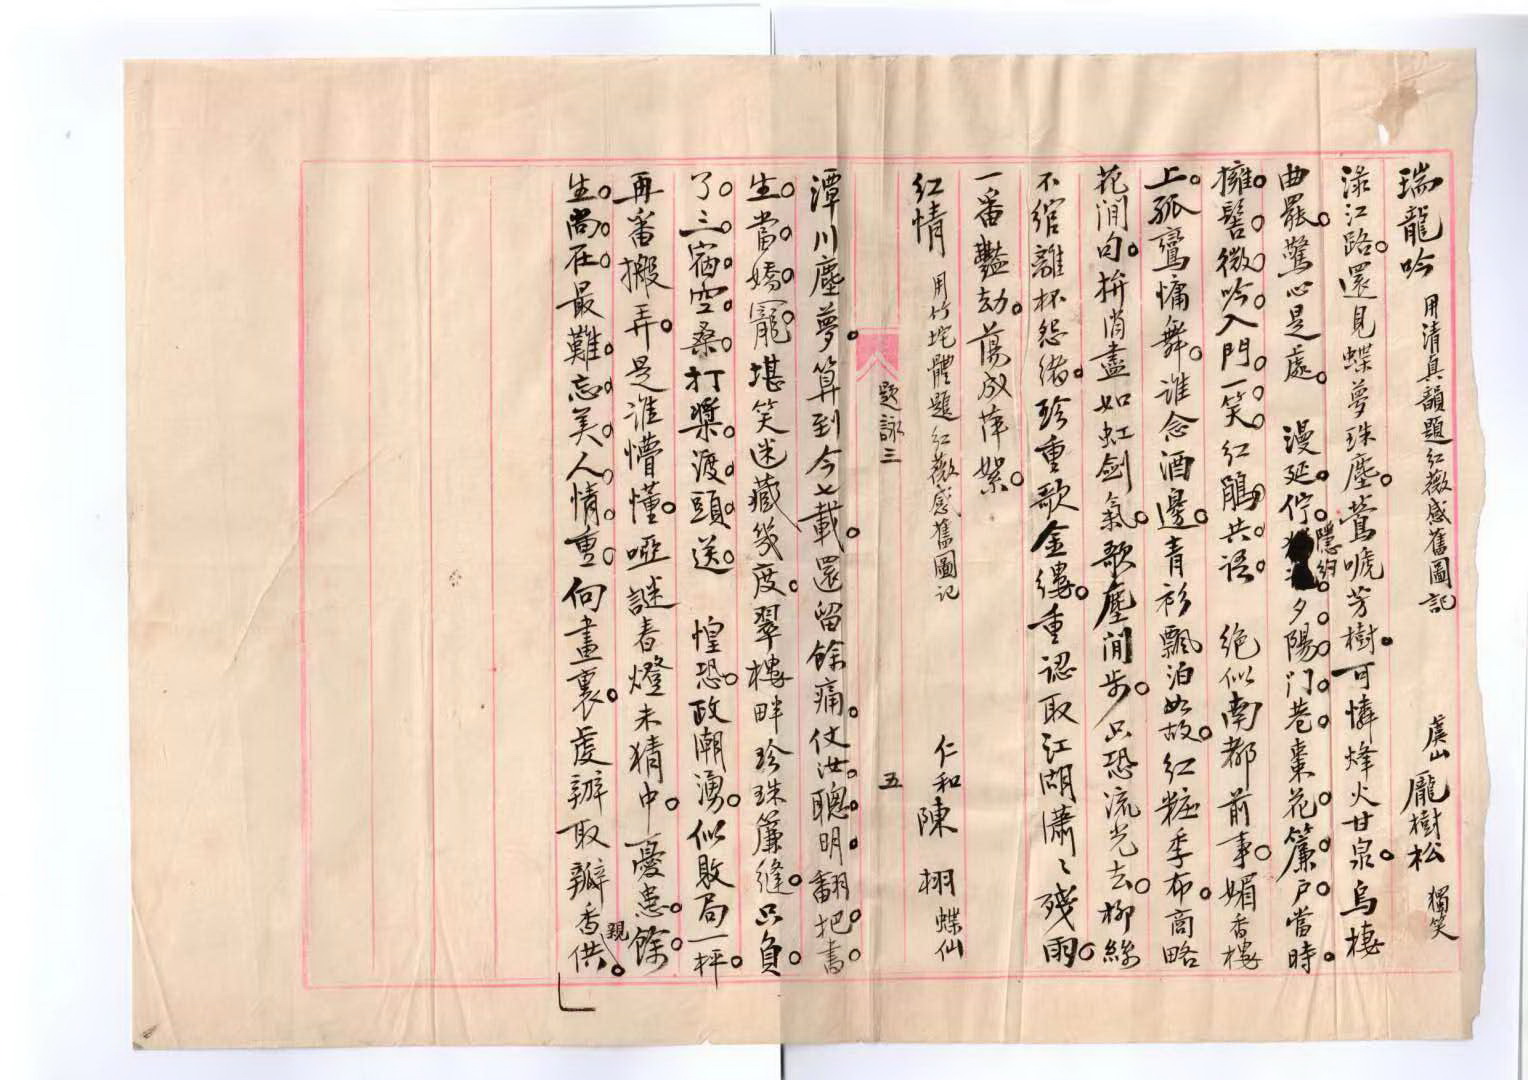 瑞龍吟 用清真韻題紅薇感舊圖記 虞山龐樹松 獨笑
淥江路。還見蝶夢珠塵。鶯嗁芳樹。可憐烽火甘泉。烏棲
曲罷。驚心是處。 漫延佇。隱約夕陽門巷。棗花簾戶。當時。
擁髻微吟。入門一笑。紅鵑共語 絕似南都前事。媚香樓
上。孤鸞慵舞。誰念酒邊。青衫飄泊如故。紅粧季布。商略
花間句。拚消盡如虹劍氣。歌塵閒步。只恐流光去。柳絲
不綰離杯怨緒。珍重歌金縷。重認取江湖瀟〻殘雨。
一番豔劫。蕩成萍絮。
紅情 用竹垞體題紅薇感舊圖記 仁和陳栩 蝶仙
題詠三 五
潭川塵夢。算到今七載。還留餘痛。仗汝聰明。翻把書
生當嬌寵。堪笑迷藏幾度。翠樓畔珍珠簾縫。只負
了。三宿空桑。打槳渡頭送。 惶恐。政潮湧。似敗局一枰。
再番搬弄。是誰懵懂。啞謎春燈未猜中。憂患餘親
生。尚在。最難忘美人情重。向畫裏。處辦取瓣香供。